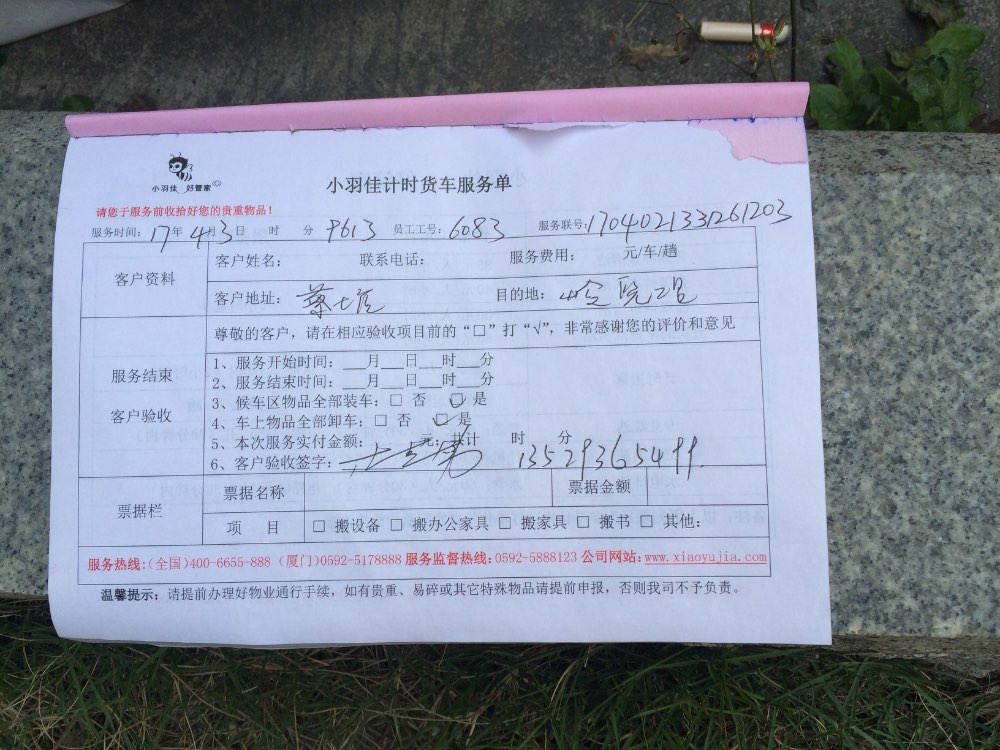 小羽佳 好管家
小羽佳计时货车服务单
请您于服务前收拾好您的贵重物品！
服务时间：17年 4月3日 时 分 9613 员工工号：6083 服务联号：1704021331261203
客户资料
客户姓名： 联系电话： 服务费用： 元/车/趟
客户地址： 目的地：
服务结束
客户验收
尊敬的客户，请在相应验收项目前的“□”打“√”，非常感谢您的评价和意见
1、服务开始时间：___月___日___时___分
2、服务结束时间：___月___日___时___分
3、候车区物品全部装车：□ 否 □ 是
4、车上物品全部卸车：□ 否 □ 是
5、本次服务实付金额： 元；共计 时 分
6、客户验收签字： 13529365499.
票据栏
票据名称 票据金额
项 目 □ 搬设备 □ 搬办公家具 □ 搬家具 □ 搬书 □ 其他：
服务热线：(全国)400-6655-888 (厦门)0592-5178888 服务监督热线：0592-5888123 公司网站：www.xiaoyujia.com
温馨提示：请提前办理好物业通行手续，如有贵重、易碎或其它特殊物品请提前申报，否则我司不予负责。